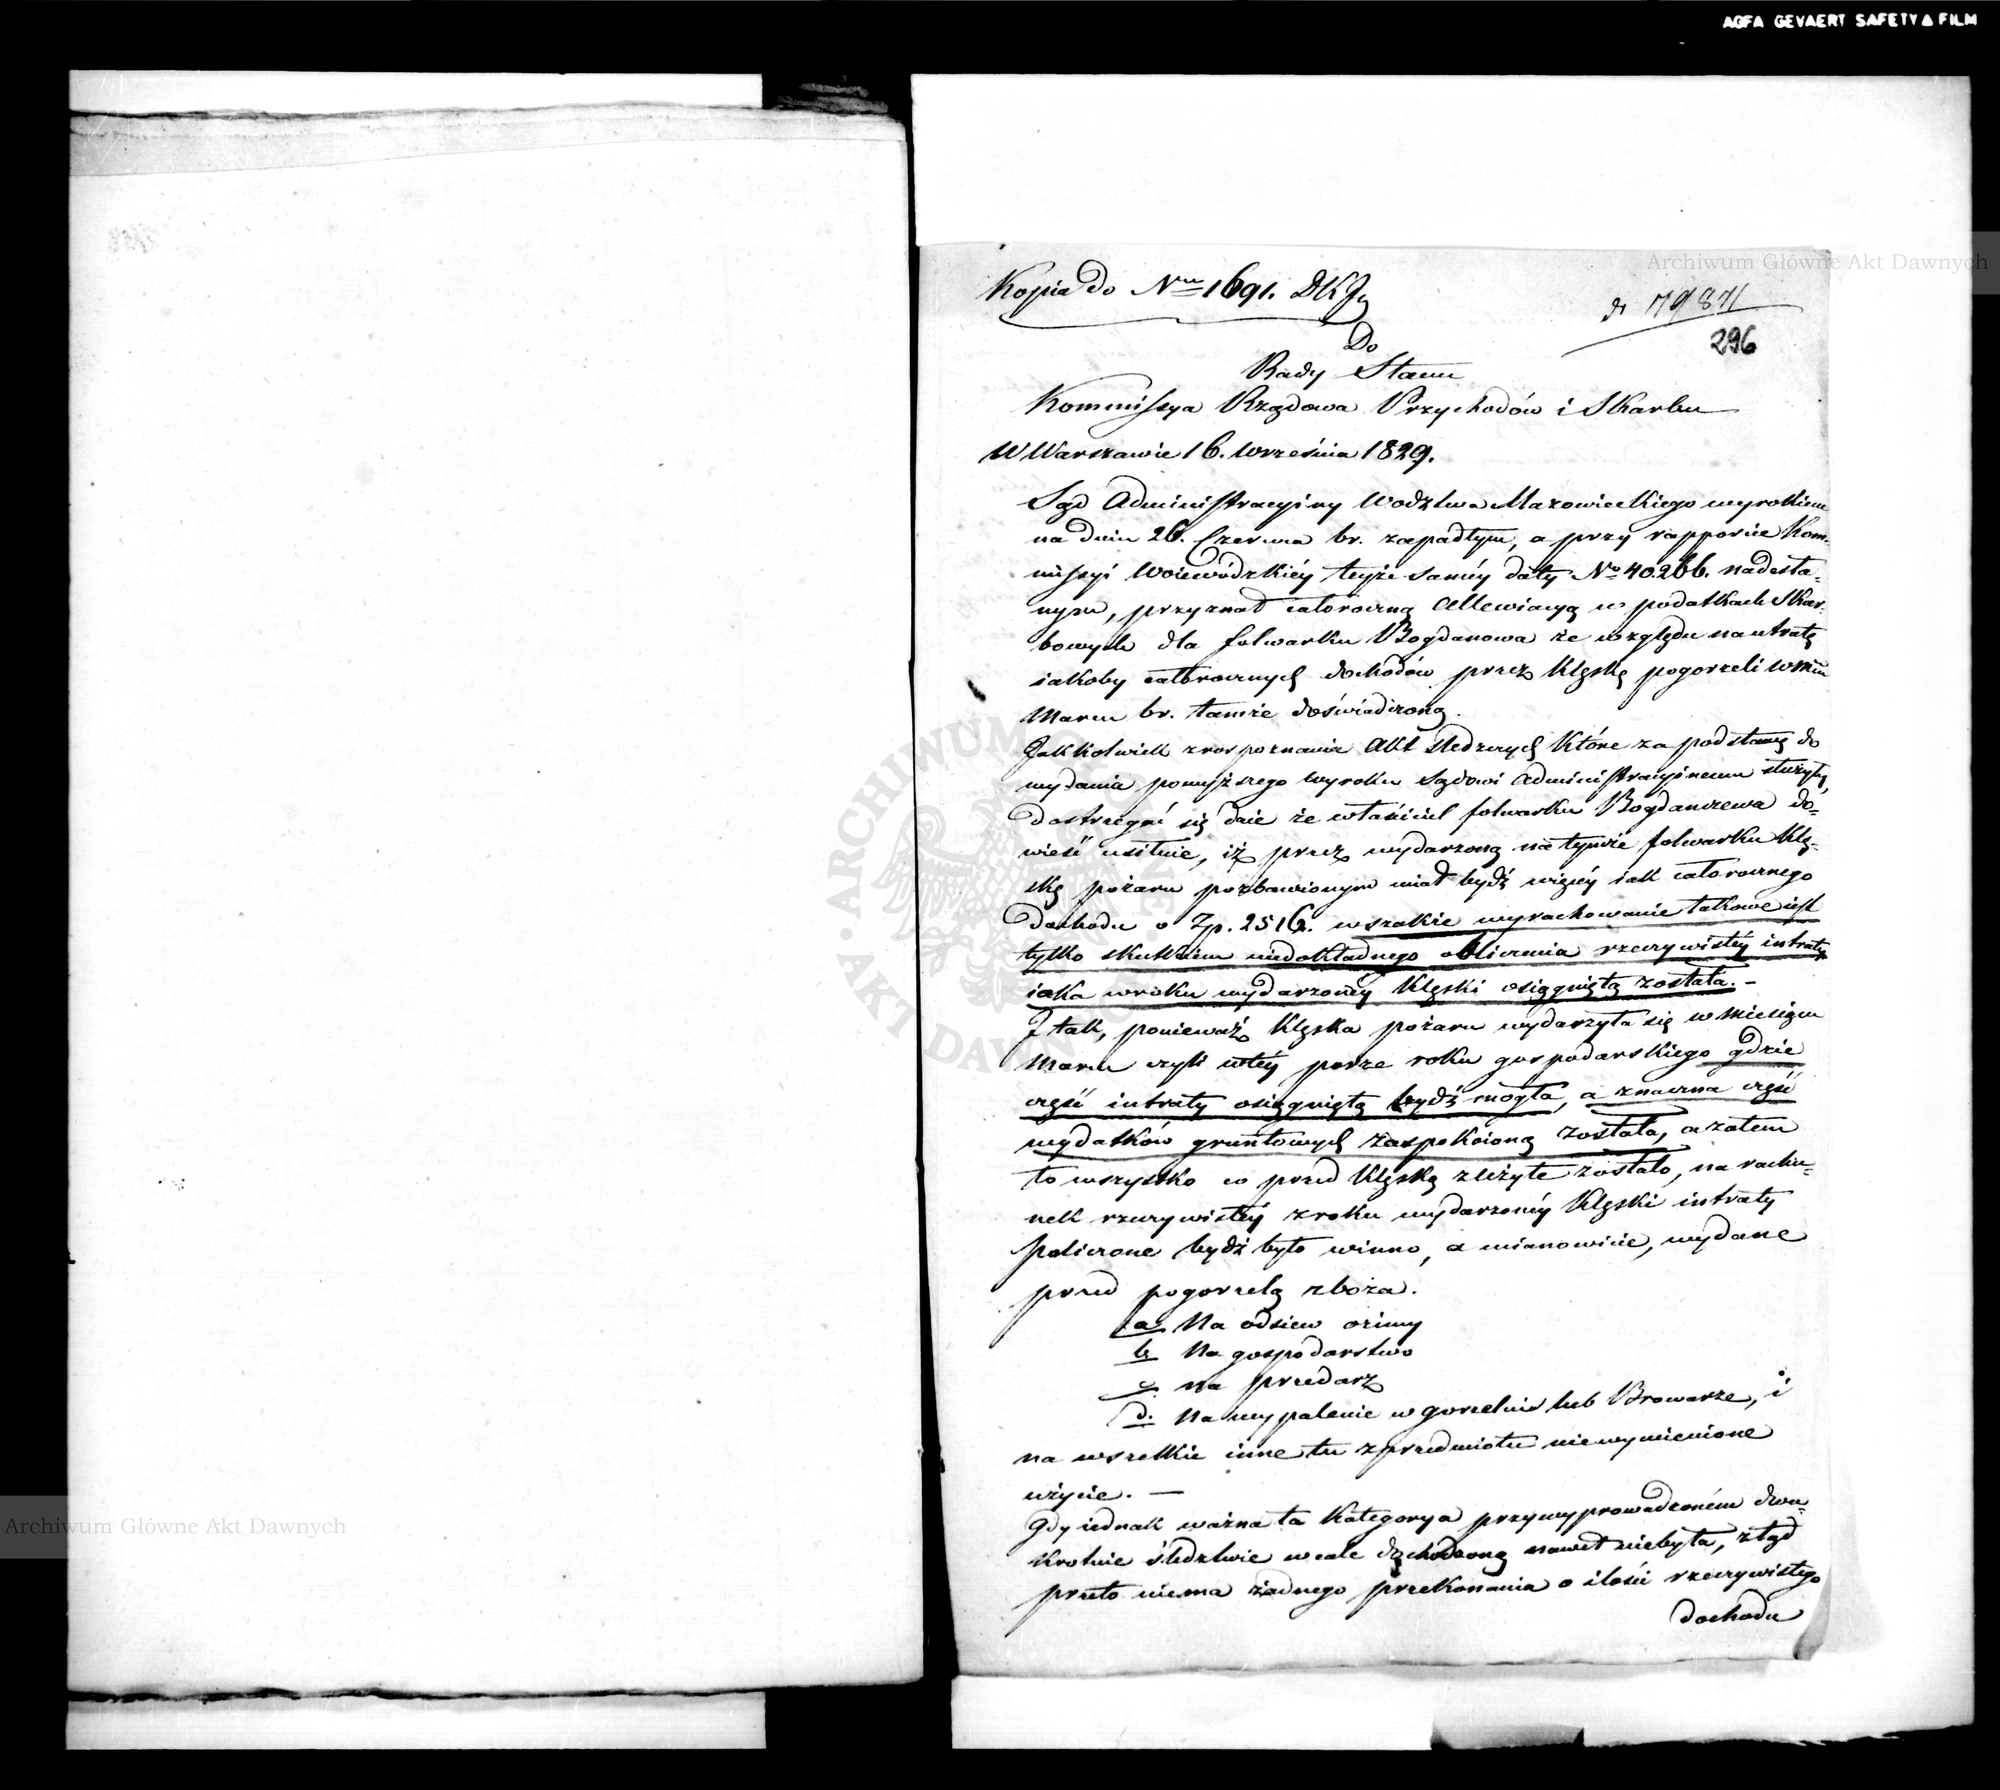 AGFA GEVAERT SAFETY FILM
Archiwum Główne Akt Dawnych
Kopia do Nru 1691. DKJ
296
Do
Rady Stanu
Kommissya Rządowa Przychodów i Skarbu
W Warszawie 16. Września 1829.
Sąd Administracyiny Wodztwa Mazowieckiego wyrokiem
na dniu 26. Czerwca br. zapadłym, a przy rapporcie Kom-
missyi Woiewódzkiéy teyże saméy daty No 40.266. nadesła-
nym, przyznał całoroczną Allewiacyą w podatkach Skar-
bowych dla folwarku Bogdanowa ze względu na utratę
iakoby całorocznych dochodów przez klęskę pogorzeli w mcu
Marcu br. tamże doświadczoną.
Jakkolwiek z rospoznania Akt śledczych które za podstawę do
wydania powyższego wyroku Sądowi Administracyinemu służyły,
dostrzegać się daie że właściciel folwarku Bogdanczewa do-
wieść usiłuie, iż przez wydarzoną na tymże folwarku klę-
skę pożaru pozbawionym miał bydź więcéy iak całorocznego
dochodu o Zp. 2516. wszakże wyrachowanie takowe iest
tylko skutkiem niedokładnego obliczenia rzeczywistéy intraty
iaka w roku wydarzonéy klęski osiągniętą została. —
I tak, ponieważ klęska pożaru wydarzyła się w Miesiącu
Marcu czyli w téy porze roku gospodarskiego gdzie
część intraty osiągniętą bydź mogła, a znaczna część
wydatków gruntowych zaspokoioną została, a zatem
to wszystko co przed klęską zużyte zostało, na rachu-
nek rzeczywistéy z roku wydarzonéy klęski intraty
policzone bydź było winno, a mianowicie, wydane
przed pogorzelą zboża.
a Na odsiew ozimy
b Na gospodarstwo
c na przedarz
d. Na wypalenie w gorzelni lub Browarze, i
na wszelkie inne tu z przedmiotu niewymienione
użycie. —
Gdy iednak ważna ta kategorya przy wyprowadzoném dwu-
krotnie śledztwie wcale dochodzoną nawet niebyła, ztąd
przeto niema żadnego przekonania o ilości rzeczywistego
dochodu
ARCHIWUM GŁÓWNE AKT DAWNYCH
Archiwum Główne Akt Dawnych